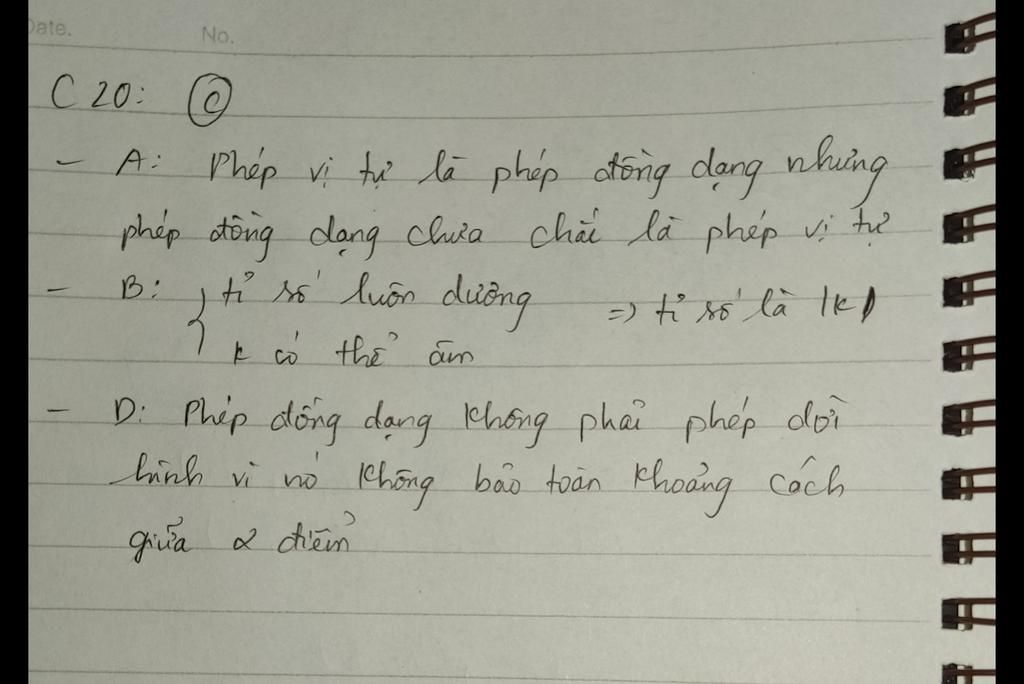 Date. No.
C 20: C
- A: Phép vị tự là phép đồng dạng nhưng
phép đồng dạng chưa chắc là phép vị tự
- B: } tỉ số luôn dương => tỉ số là |k|
k có thể âm
- D: Phép đồng dạng không phải phép dời
hình vì nó không bảo toàn khoảng cách
giữa 2 điểm